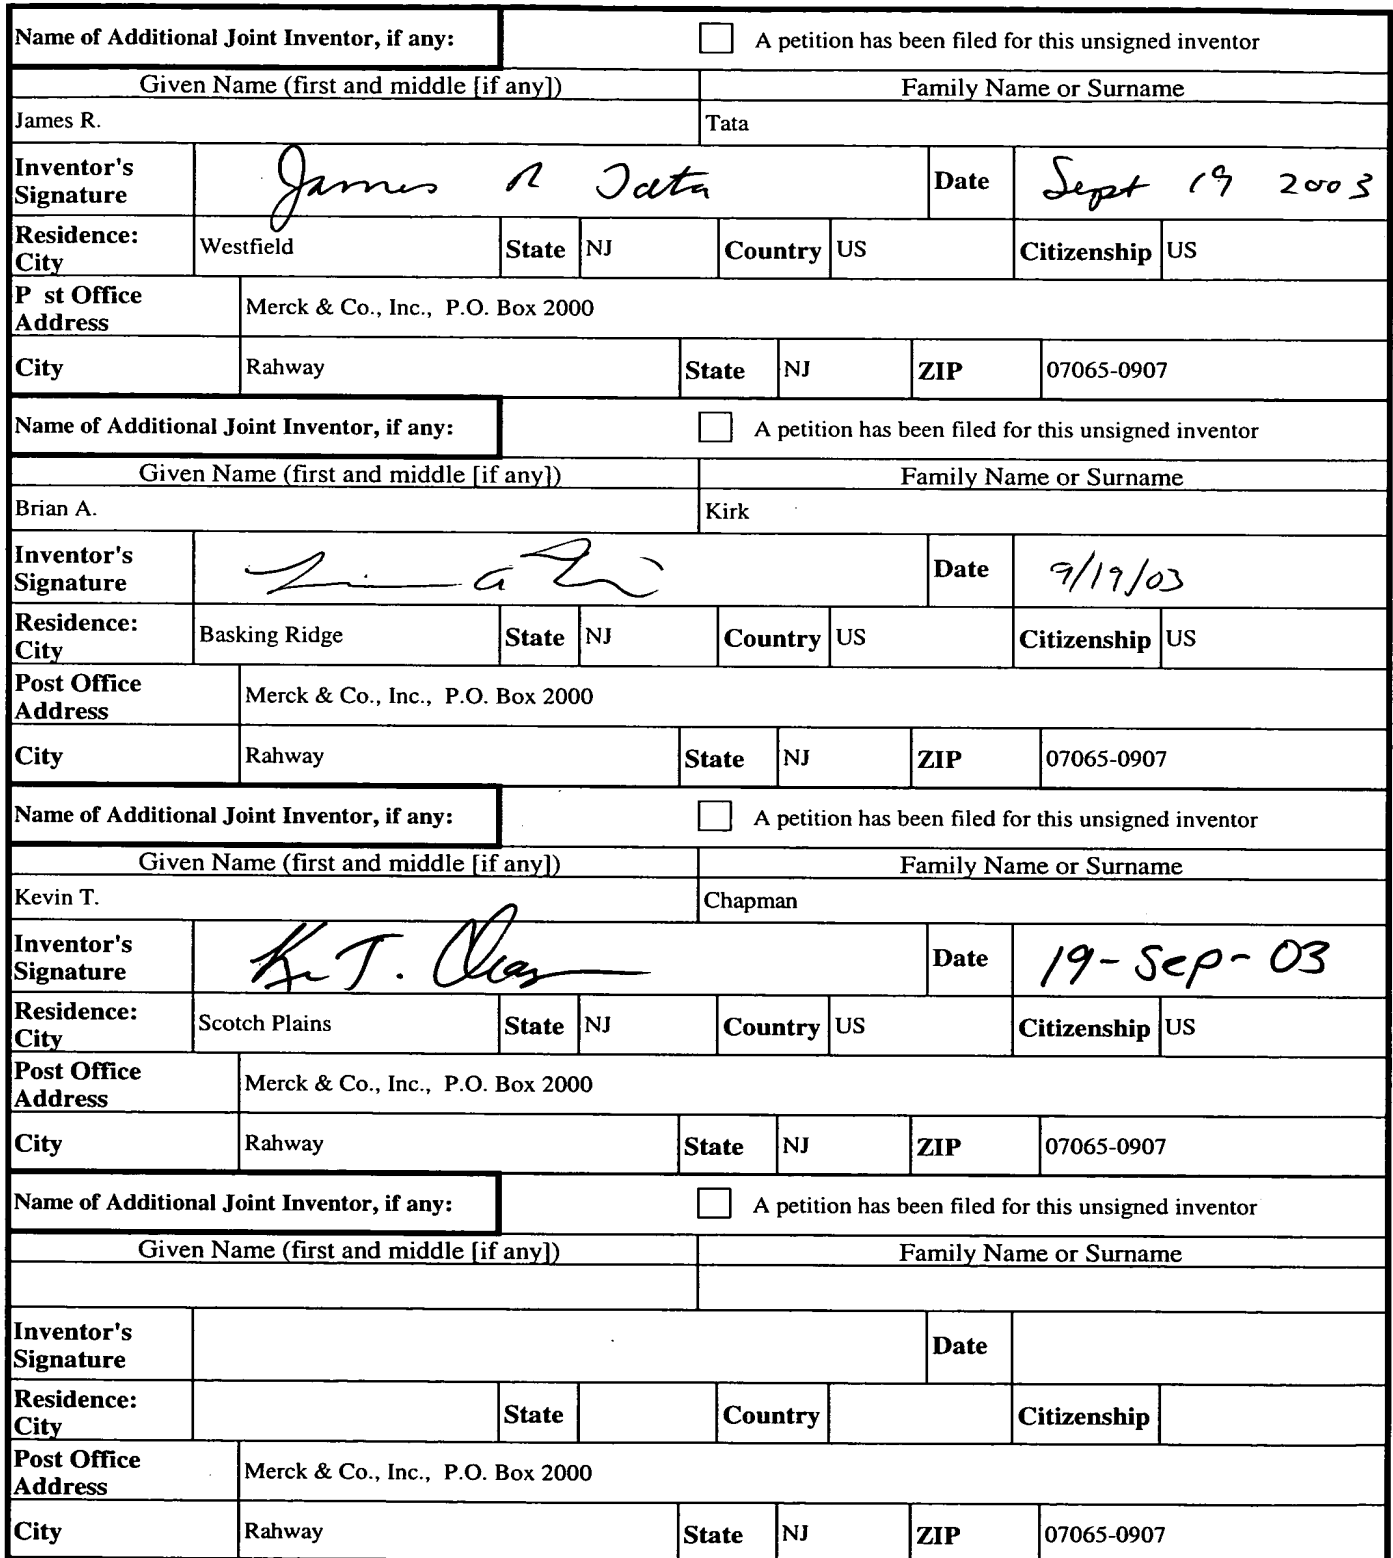 Name of Additional Joint Inventor, if any: A petition has been filed for this unsigned inventor
Given Name (first and middle [if any]) Family Name or Surname
James R. Tata
Inventor's Signature James R Tata Date Sept 19 2003
Residence: City Westfield State NJ Country US Citizenship US
P st Office Address Merck & Co., Inc., P.O. Box 2000
City Rahway State NJ ZIP 07065-0907
Name of Additional Joint Inventor, if any: A petition has been filed for this unsigned inventor
Given Name (first and middle [if any]) Family Name or Surname
Brian A. Kirk
Inventor's Signature Date 9/19/03
Residence: City Basking Ridge State NJ Country US Citizenship US
Post Office Address Merck & Co., Inc., P.O. Box 2000
City Rahway State NJ ZIP 07065-0907
Name of Additional Joint Inventor, if any: A petition has been filed for this unsigned inventor
Given Name (first and middle [if any]) Family Name or Surname
Kevin T. Chapman
Inventor's Signature Date 19-Sep-03
Residence: City Scotch Plains State NJ Country US Citizenship US
Post Office Address Merck & Co., Inc., P.O. Box 2000
City Rahway State NJ ZIP 07065-0907
Name of Additional Joint Inventor, if any: A petition has been filed for this unsigned inventor
Given Name (first and middle [if any]) Family Name or Surname
Inventor's Signature Date
Residence: City State Country Citizenship
Post Office Address Merck & Co., Inc., P.O. Box 2000
City Rahway State NJ ZIP 07065-0907